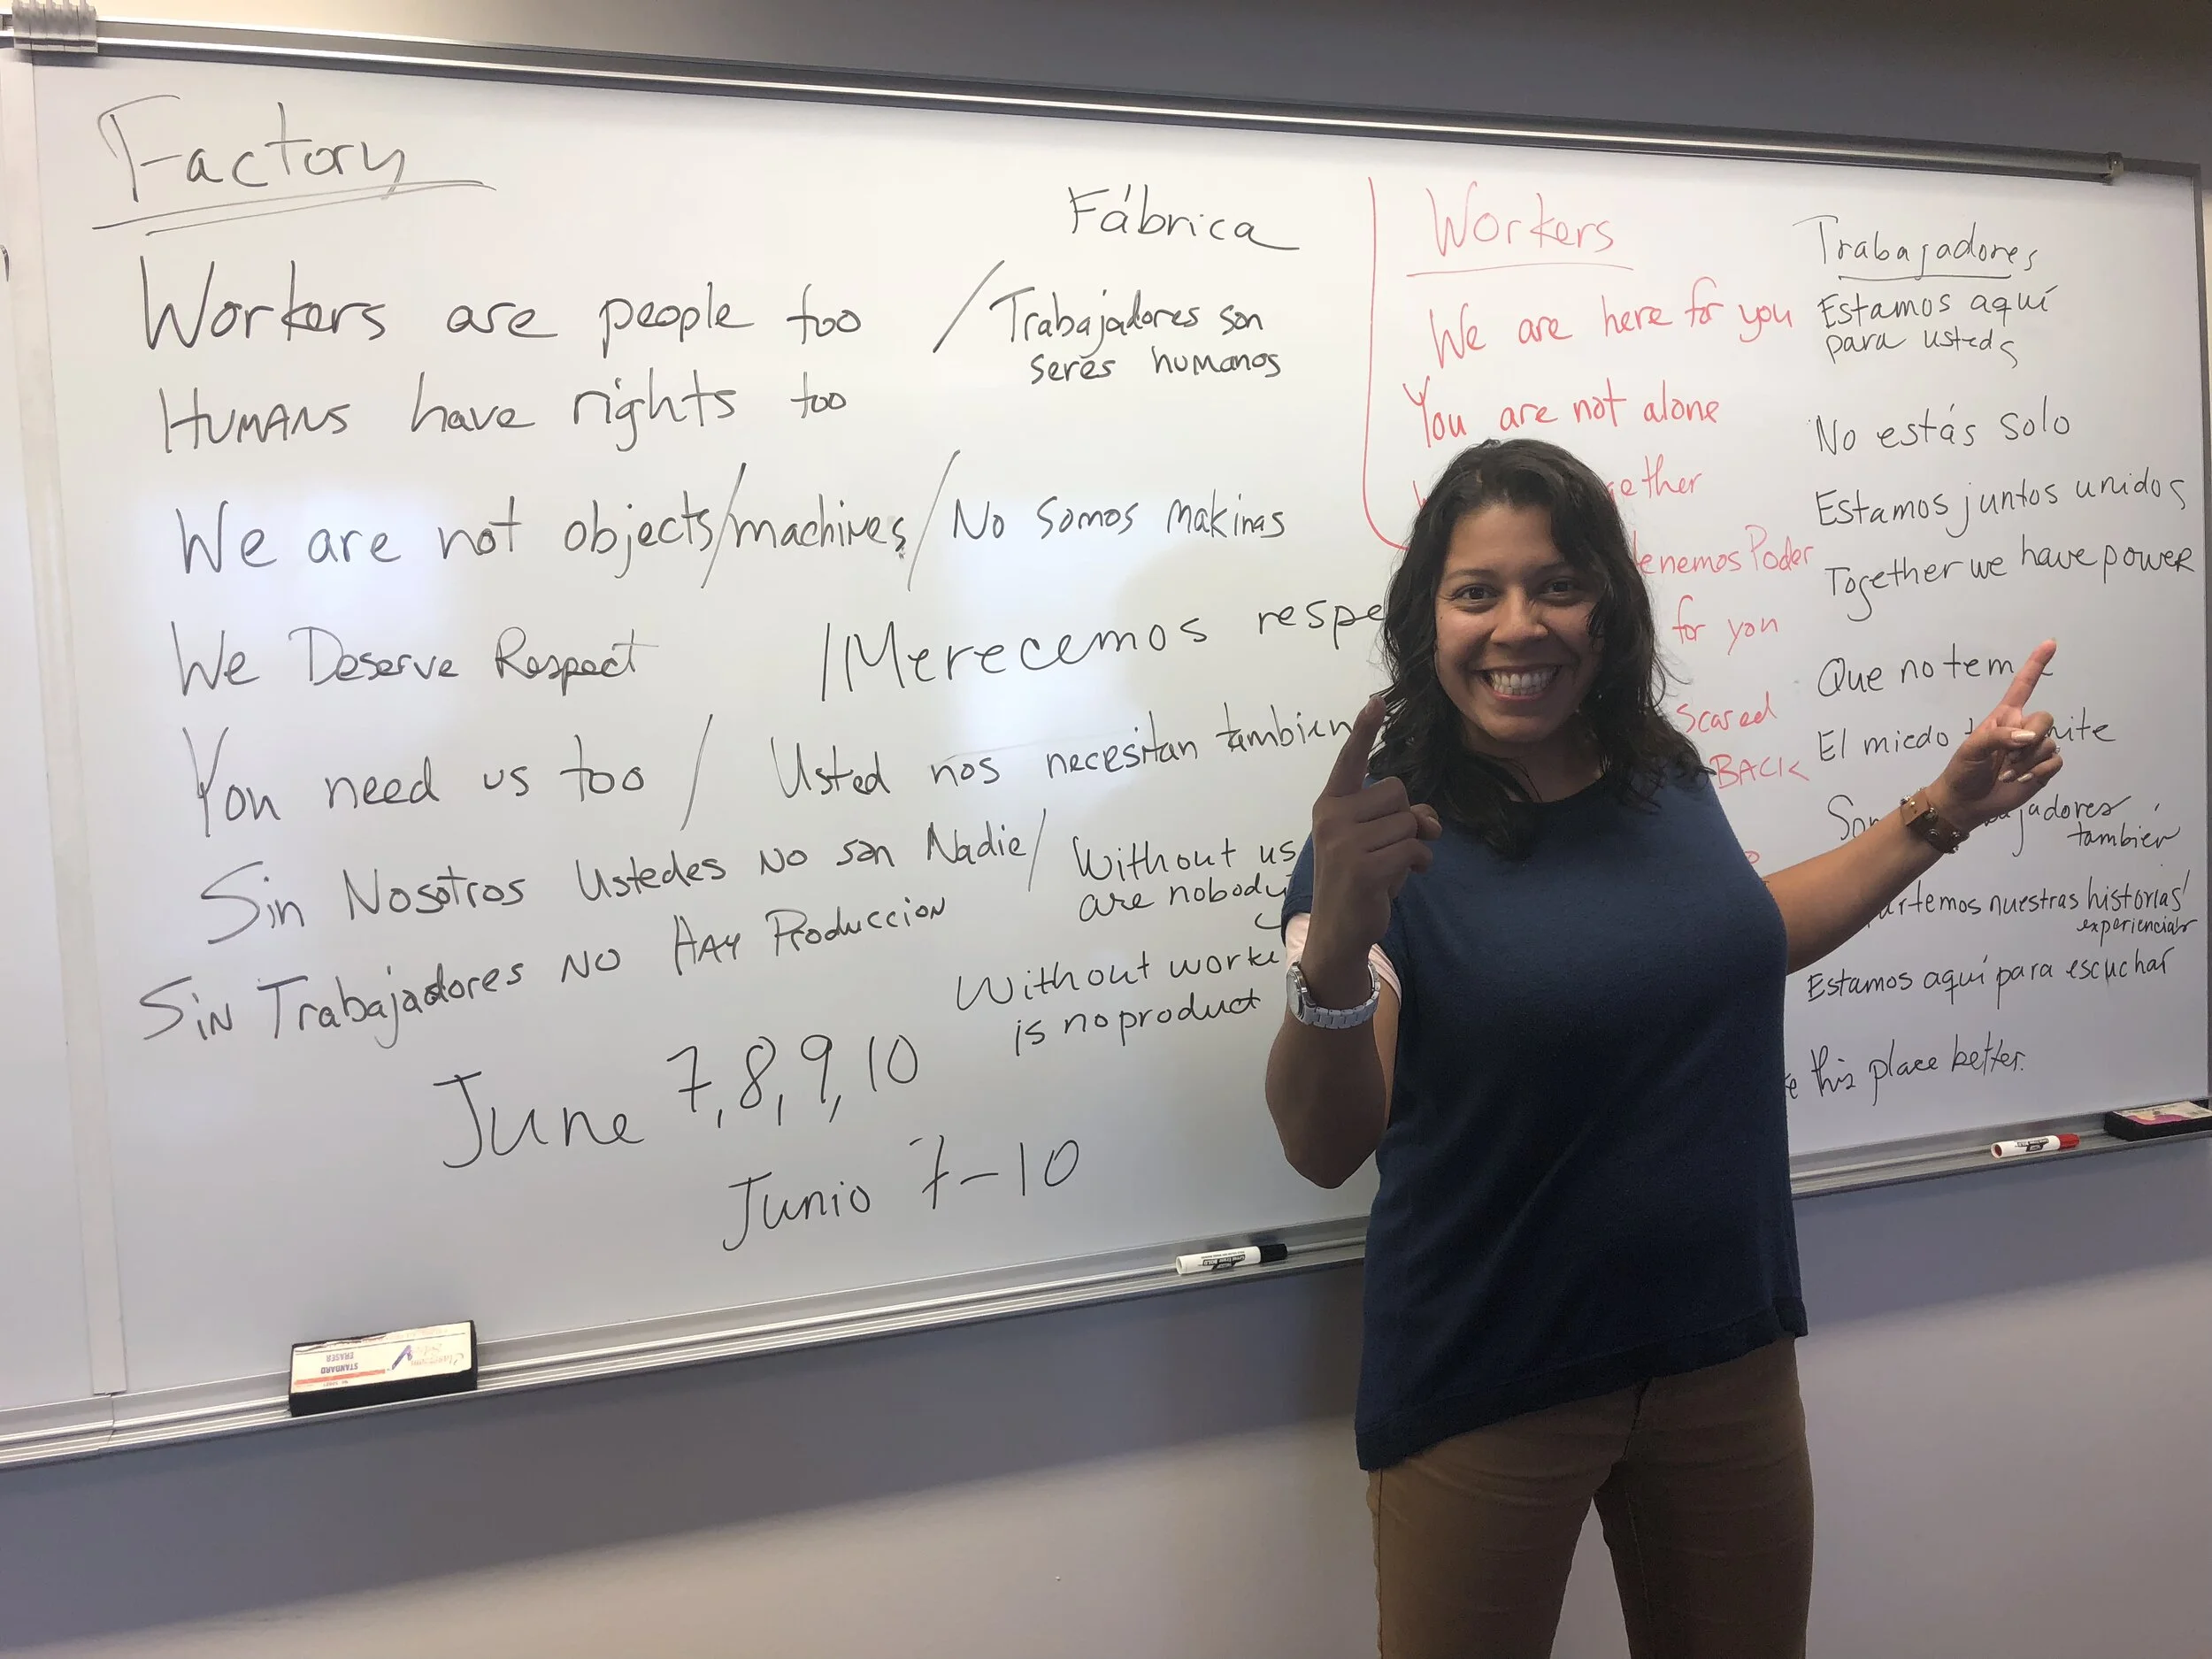 Factory
Fábrica
Workers are people too / Trabajadores son
seres humanos
HUMANS have rights too
We are not objects/machines / No somos makinas
We Deserve Respect / Merecemos
You need us too / Usted nos necesitan tambien
Sin Nosotros Ustedes NO son Nadie / Without us
are nobody
Sin Trabajadores NO HAY Produccion
Without
is no product
June 7, 8, 9, 10
Junio 7-10
Workers
We are here for you
You are not alone
Poder
for you
scared
BACK
Trabajadores
Estamos aquí
para usteds
No estás solo
Estamos juntos unidos
Together we have power
Que no
El miedo
también
nuestras historias
experiencias
Estamos aquí para escuchar
this place better.
STANDARD
ERASER